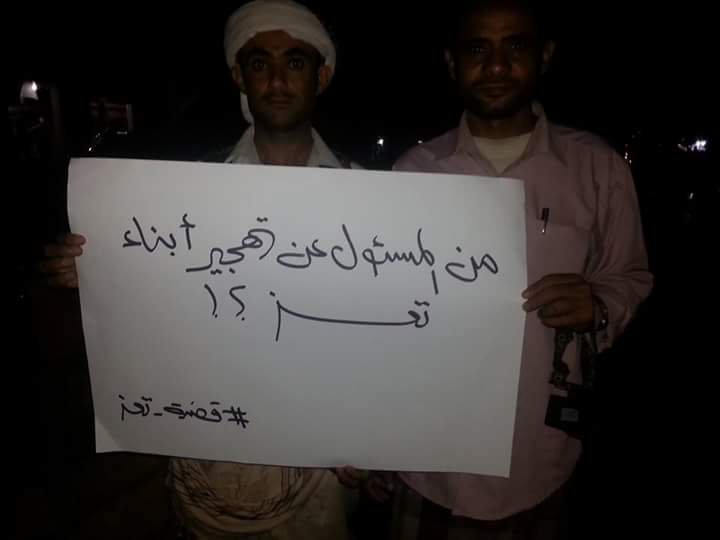 من المسئول عن تهجير أبناء
تعز ؟!
#قضية_تعز